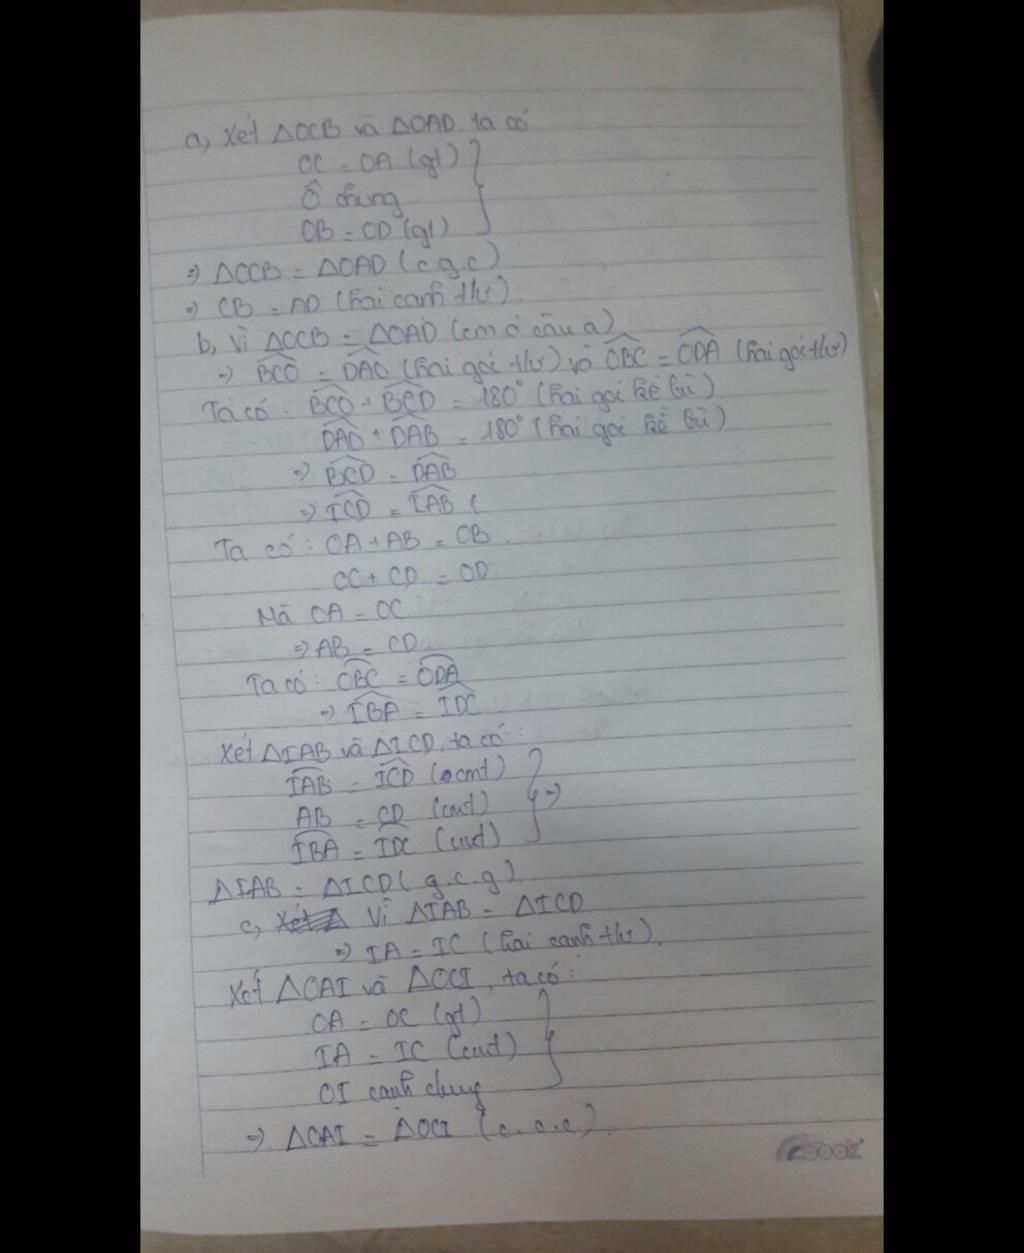 a, Xét ΔOCB và ΔOAD, ta có
OC = OA (gt)
Ô chung
OB = OD (gt)
=> ΔOCB = ΔOAD (c.g.c)
=> CB = AD (hai cạnh t/ư)
b, Vì ΔOCB = ΔOAD (cm ở câu a)
=> \widehat{BCO} = \widehat{DAO} (hai góc t/ư) và \widehat{OBC} = \widehat{ODA} (hai góc t/ư)
Ta có: \widehat{BCO} + \widehat{BCD} = 180° (hai góc kề bù)
\widehat{DAO} + \widehat{DAB} = 180° (hai góc kề bù)
=> \widehat{BCD} = \widehat{DAB}
=> \widehat{ICD} = \widehat{IAB} (
Ta có: OA + AB = OB.
OC + CD = OD
Mà OA = OC
=> AB = CD.
Ta có: \widehat{OBC} = \widehat{ODA}
=> \widehat{IBA} = \widehat{IDC}
Xét ΔIAB và ΔICD, ta có:
\widehat{IAB} = \widehat{ICD} (cmt)
AB = CD (cmt)
\widehat{IBA} = \widehat{IDC} (cmt)
=>
ΔIAB = ΔICD (g.c.g)
c, Vì ΔIAB = ΔICD
=> IA = IC (hai cạnh t/ư).
Xét ΔOAI và ΔOCI, ta có:
OA = OC (gt)
IA = IC (cmt)
OI cạnh chung
=> ΔOAI = ΔOCI (c.c.c)